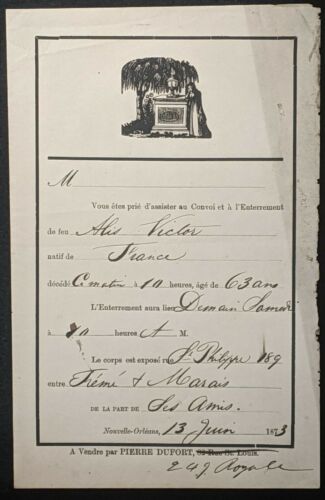 M
Vous êtes prié d'assister au Convoi et à l'Enterrement
de feu Alis Victor
natif de France
décédé Ce matin à 10 heures, âgé de 63 ans
L'Enterrement aura lieu Demain Samedi
à 10 heures A M.
Le corps est exposé rue St. Philippe 189
entre Trémé & Marais
DE LA PART DE Ses Amis.
Nouvelle-Orléans, 13 Juin 1873
A Vendre par PIERRE DUFORT, 32 Rue St. Louis.
249 Royale